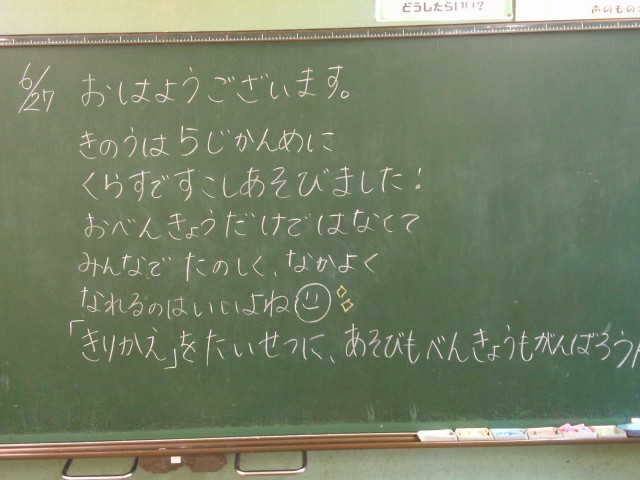 どうしたらいい?
声のもの
6/27 おはようございます。
きのうは5じかんめに
くらすですこしあそびました!
おべんきょうだけではなくて
みんなで たのしく、なかよく
なれるのはいいよね
「きりかえ」をたいせつに、あそびもべんきょうもがんばろう